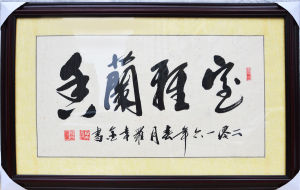 室雅蘭香
二〇一六年春月羅幸書